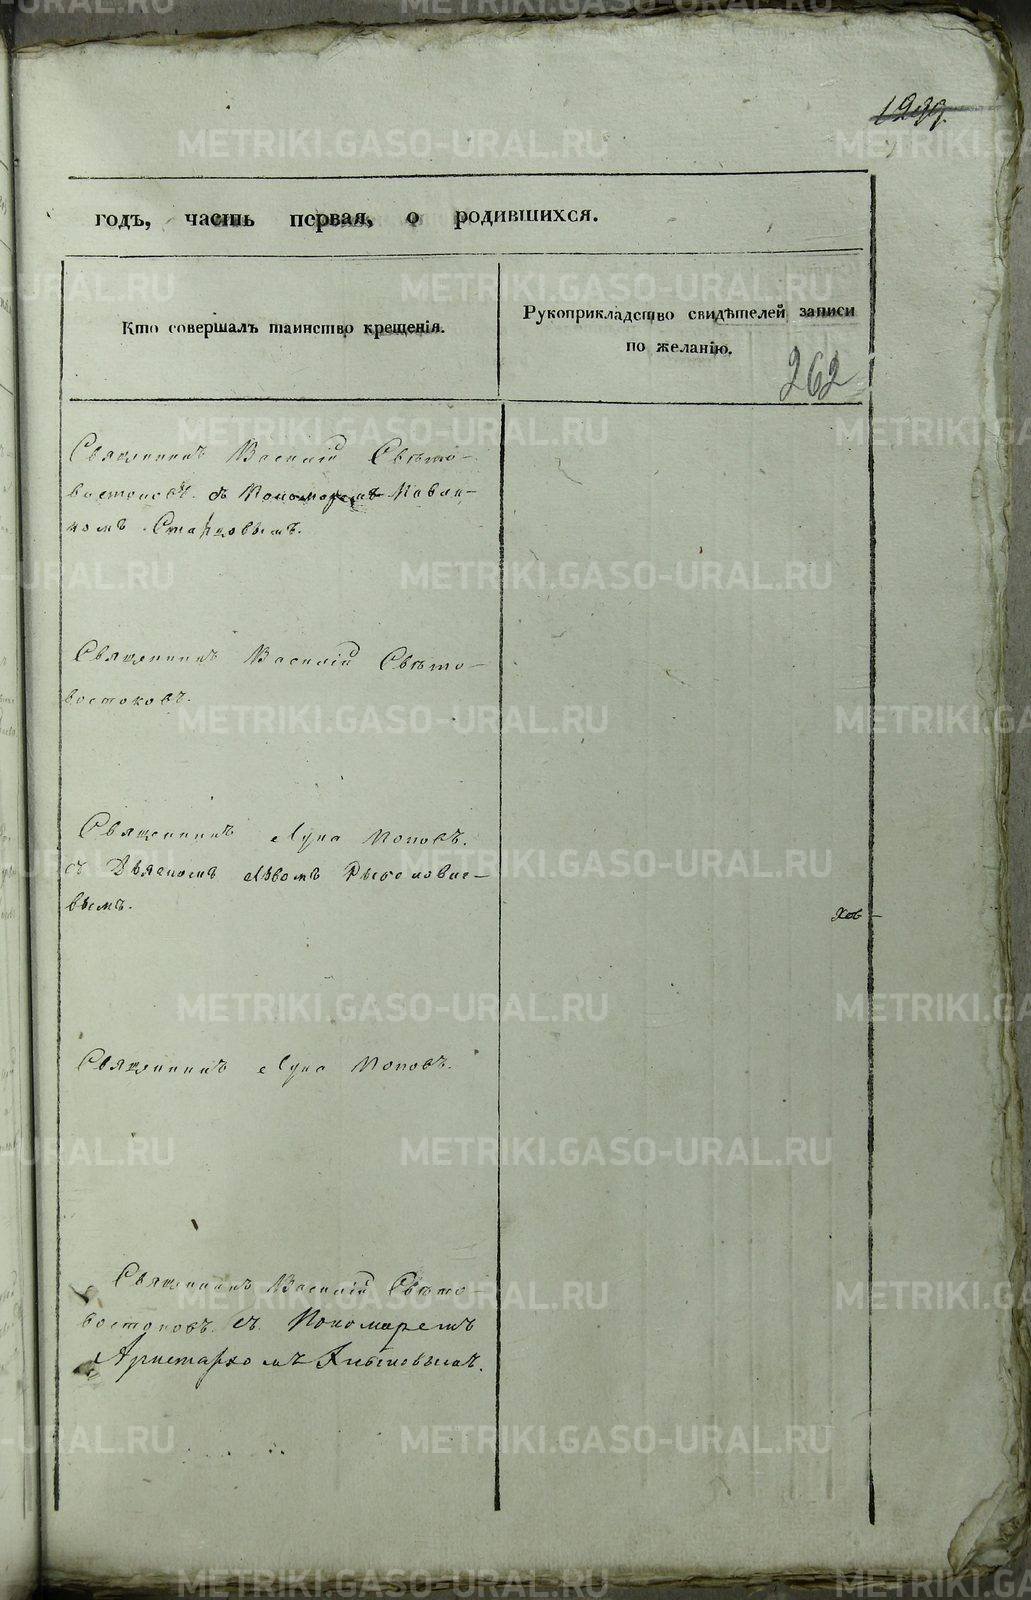 1239.
годъ, часть первая, о родившихся.
Кто совершалъ таинство крещенія.
Рукоприкладство свидѣтелей записи
по желанію.
262
Священникъ Василій Свѣто-
востоковъ. съ Пономаремъ
комъ Старцовымъ.
Священникъ Василій Свѣто-
востоковъ.
Священникъ Лука Поповъ.
съ Львомъ
вымъ.
Священникъ Лука Поповъ.
Священникъ Василій Свѣто-
востоковъ. съ Пономаремъ
Аристархомъ
METRIKI.GASO-URAL.RU